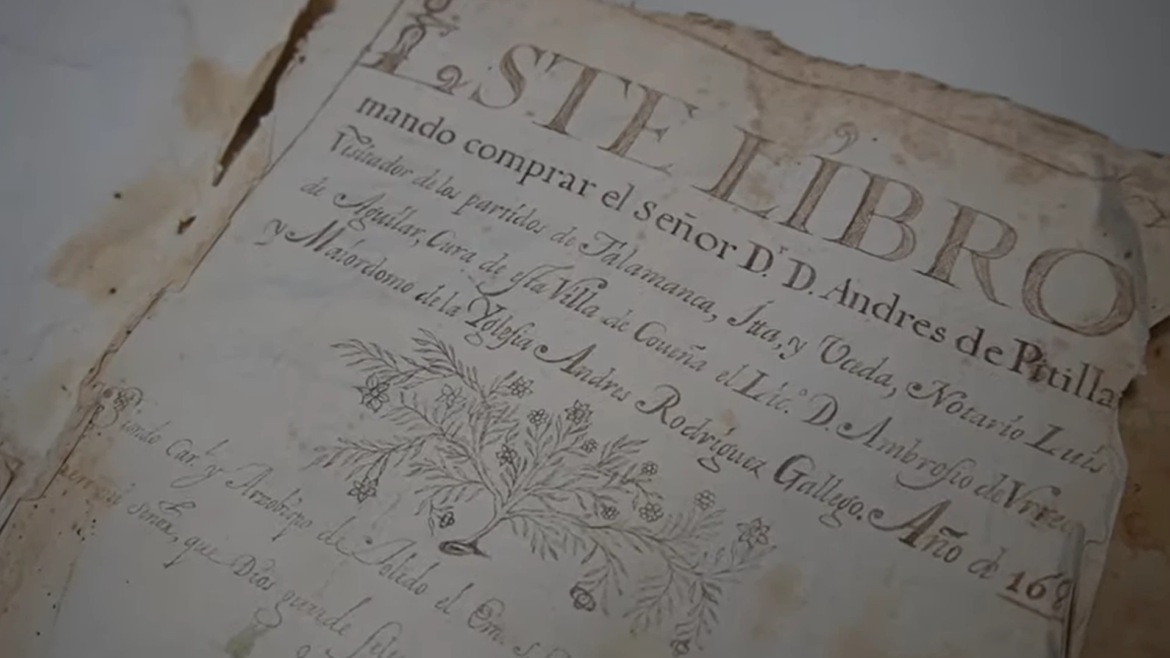 ESTE LIBRO
mando comprar el Señor D.r D. Andres de Pitilla
Visitador delos partidos de Talamanca, Ita, y Uceda, Notario Luis
de Aguilar, Cura de esta Villa de Coueña el Lic.º D. Ambrosio de
y Maiordomo de la Yglesia Andres Rodriguez Gallego. Año de 168
Siendo Car.l y Arzobispo de Tolido el Em.º S.
Señor, que Dios guarde